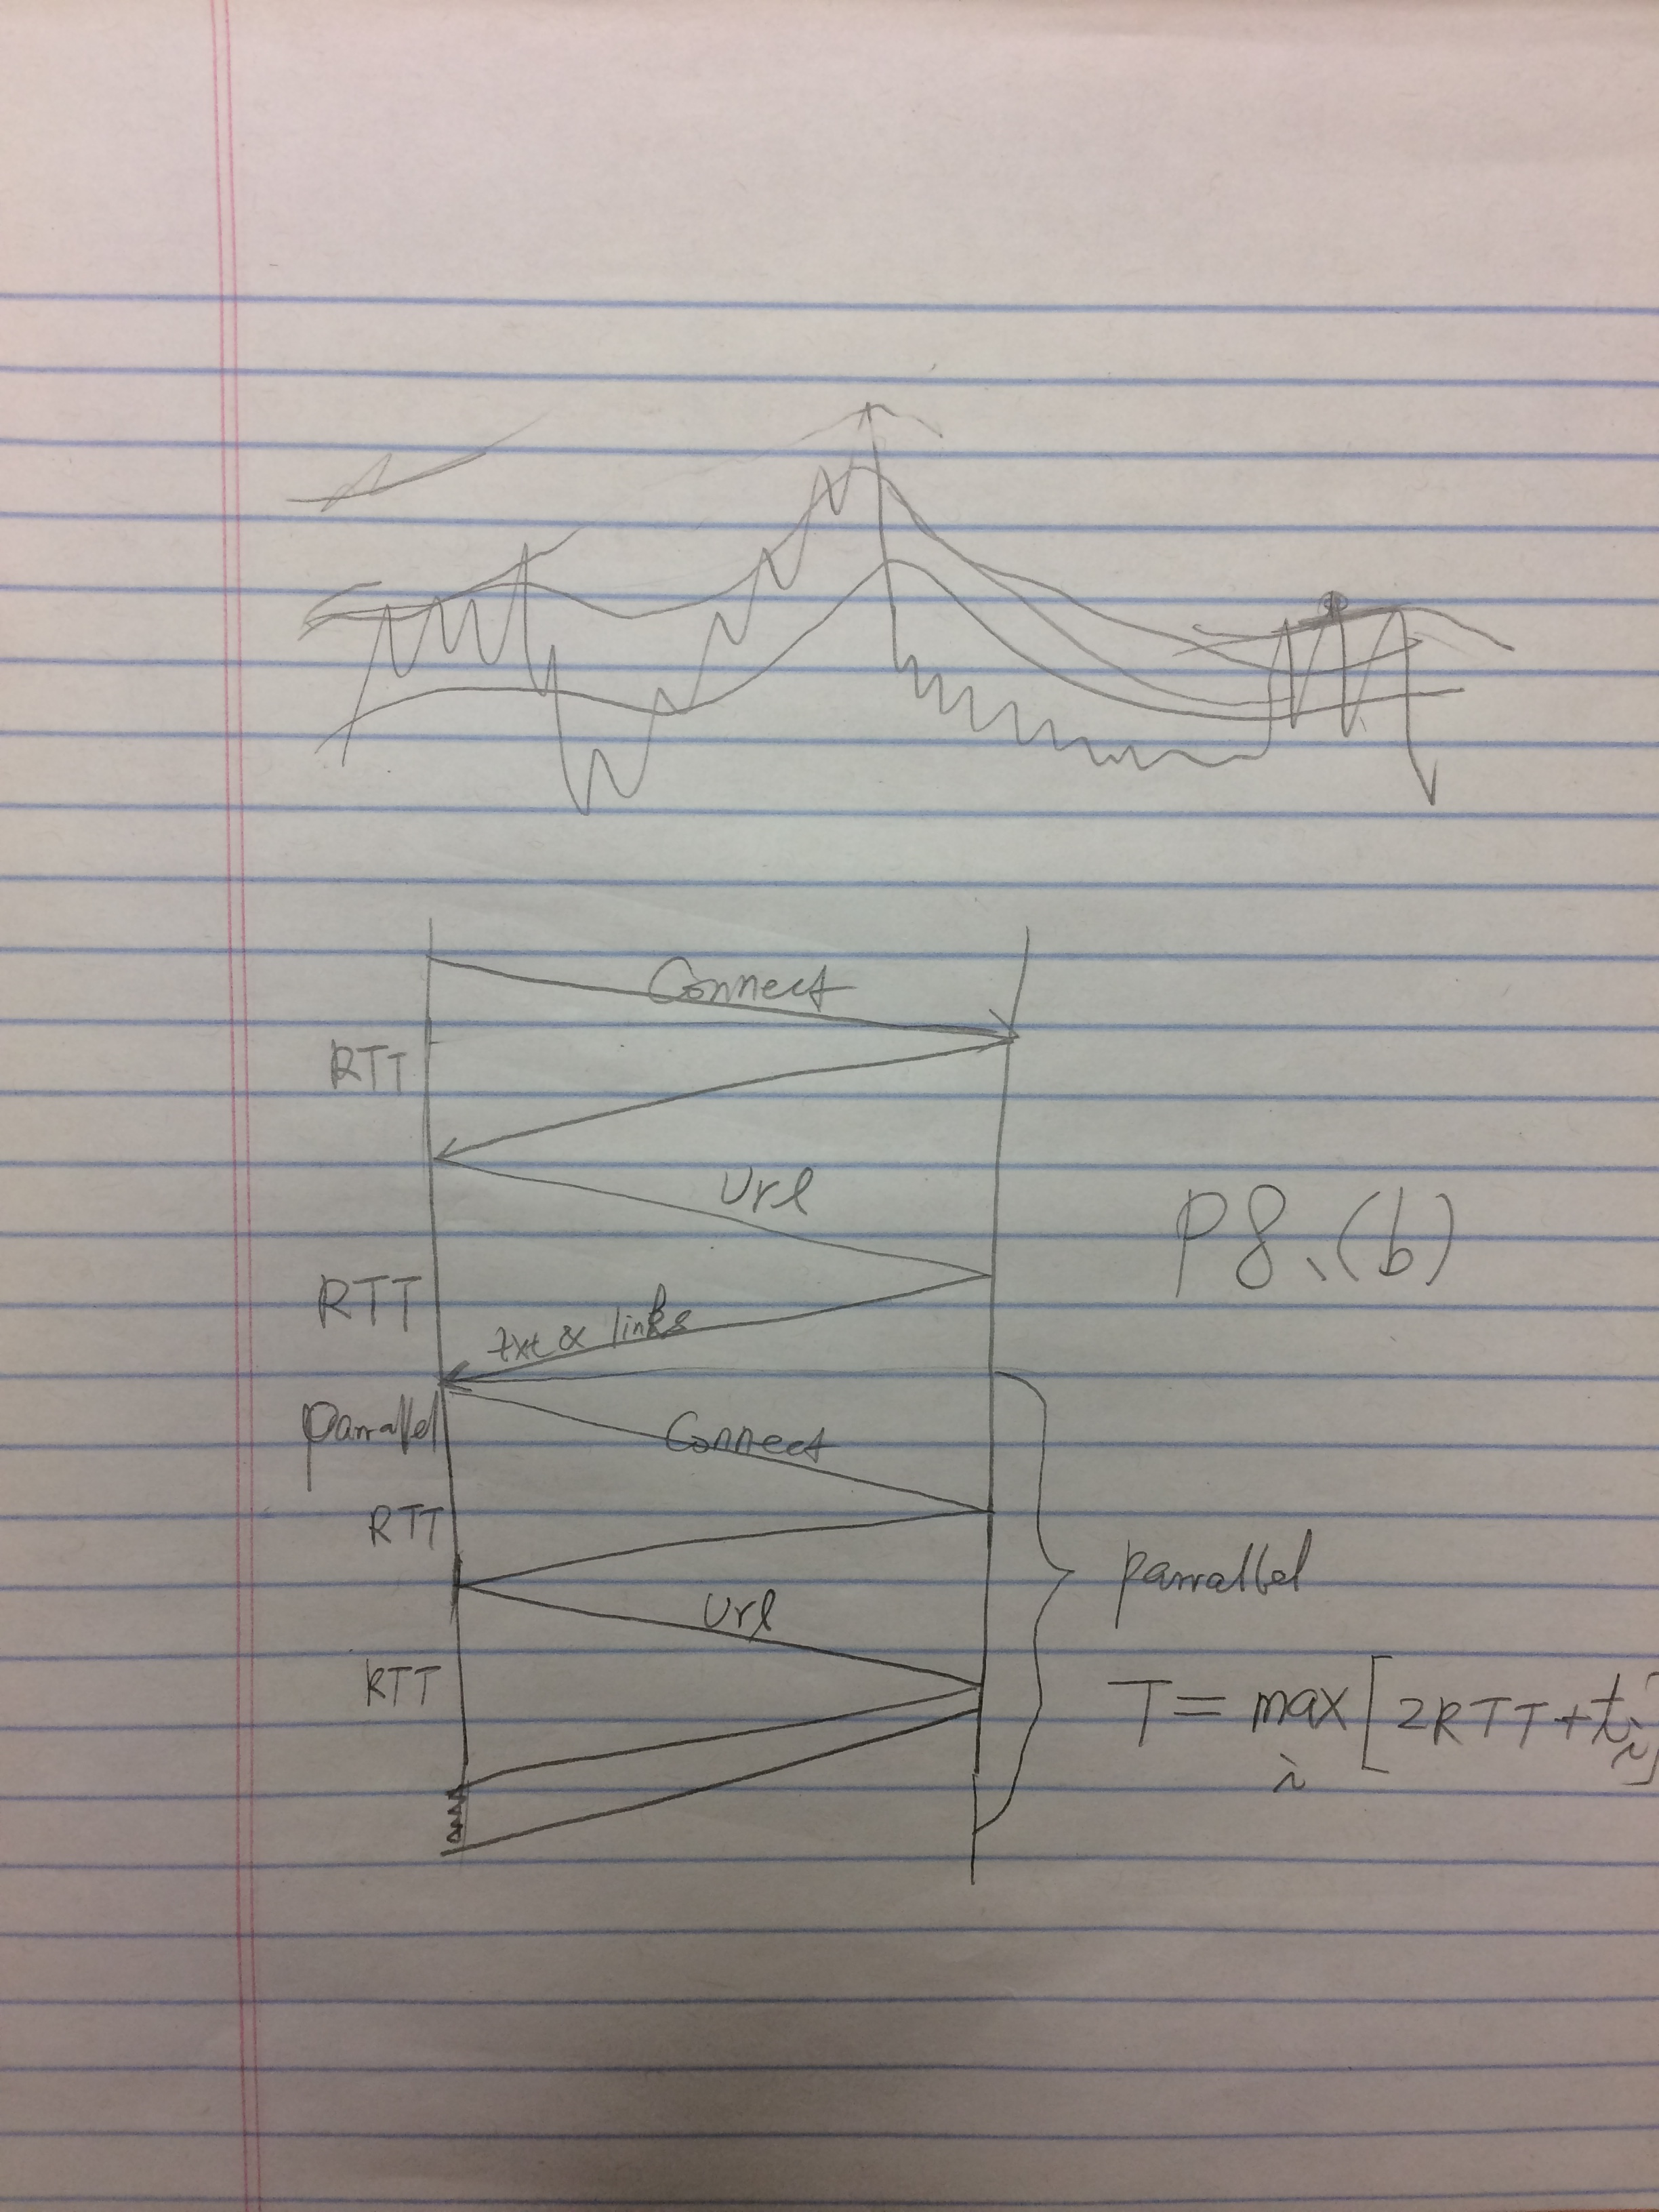 Connect
RTT
Url
P8.(b)
RTT
txt & links
parrallel
Connect
RTT
parrallel
Url
RTT
T = max [2RTT + ti]
i